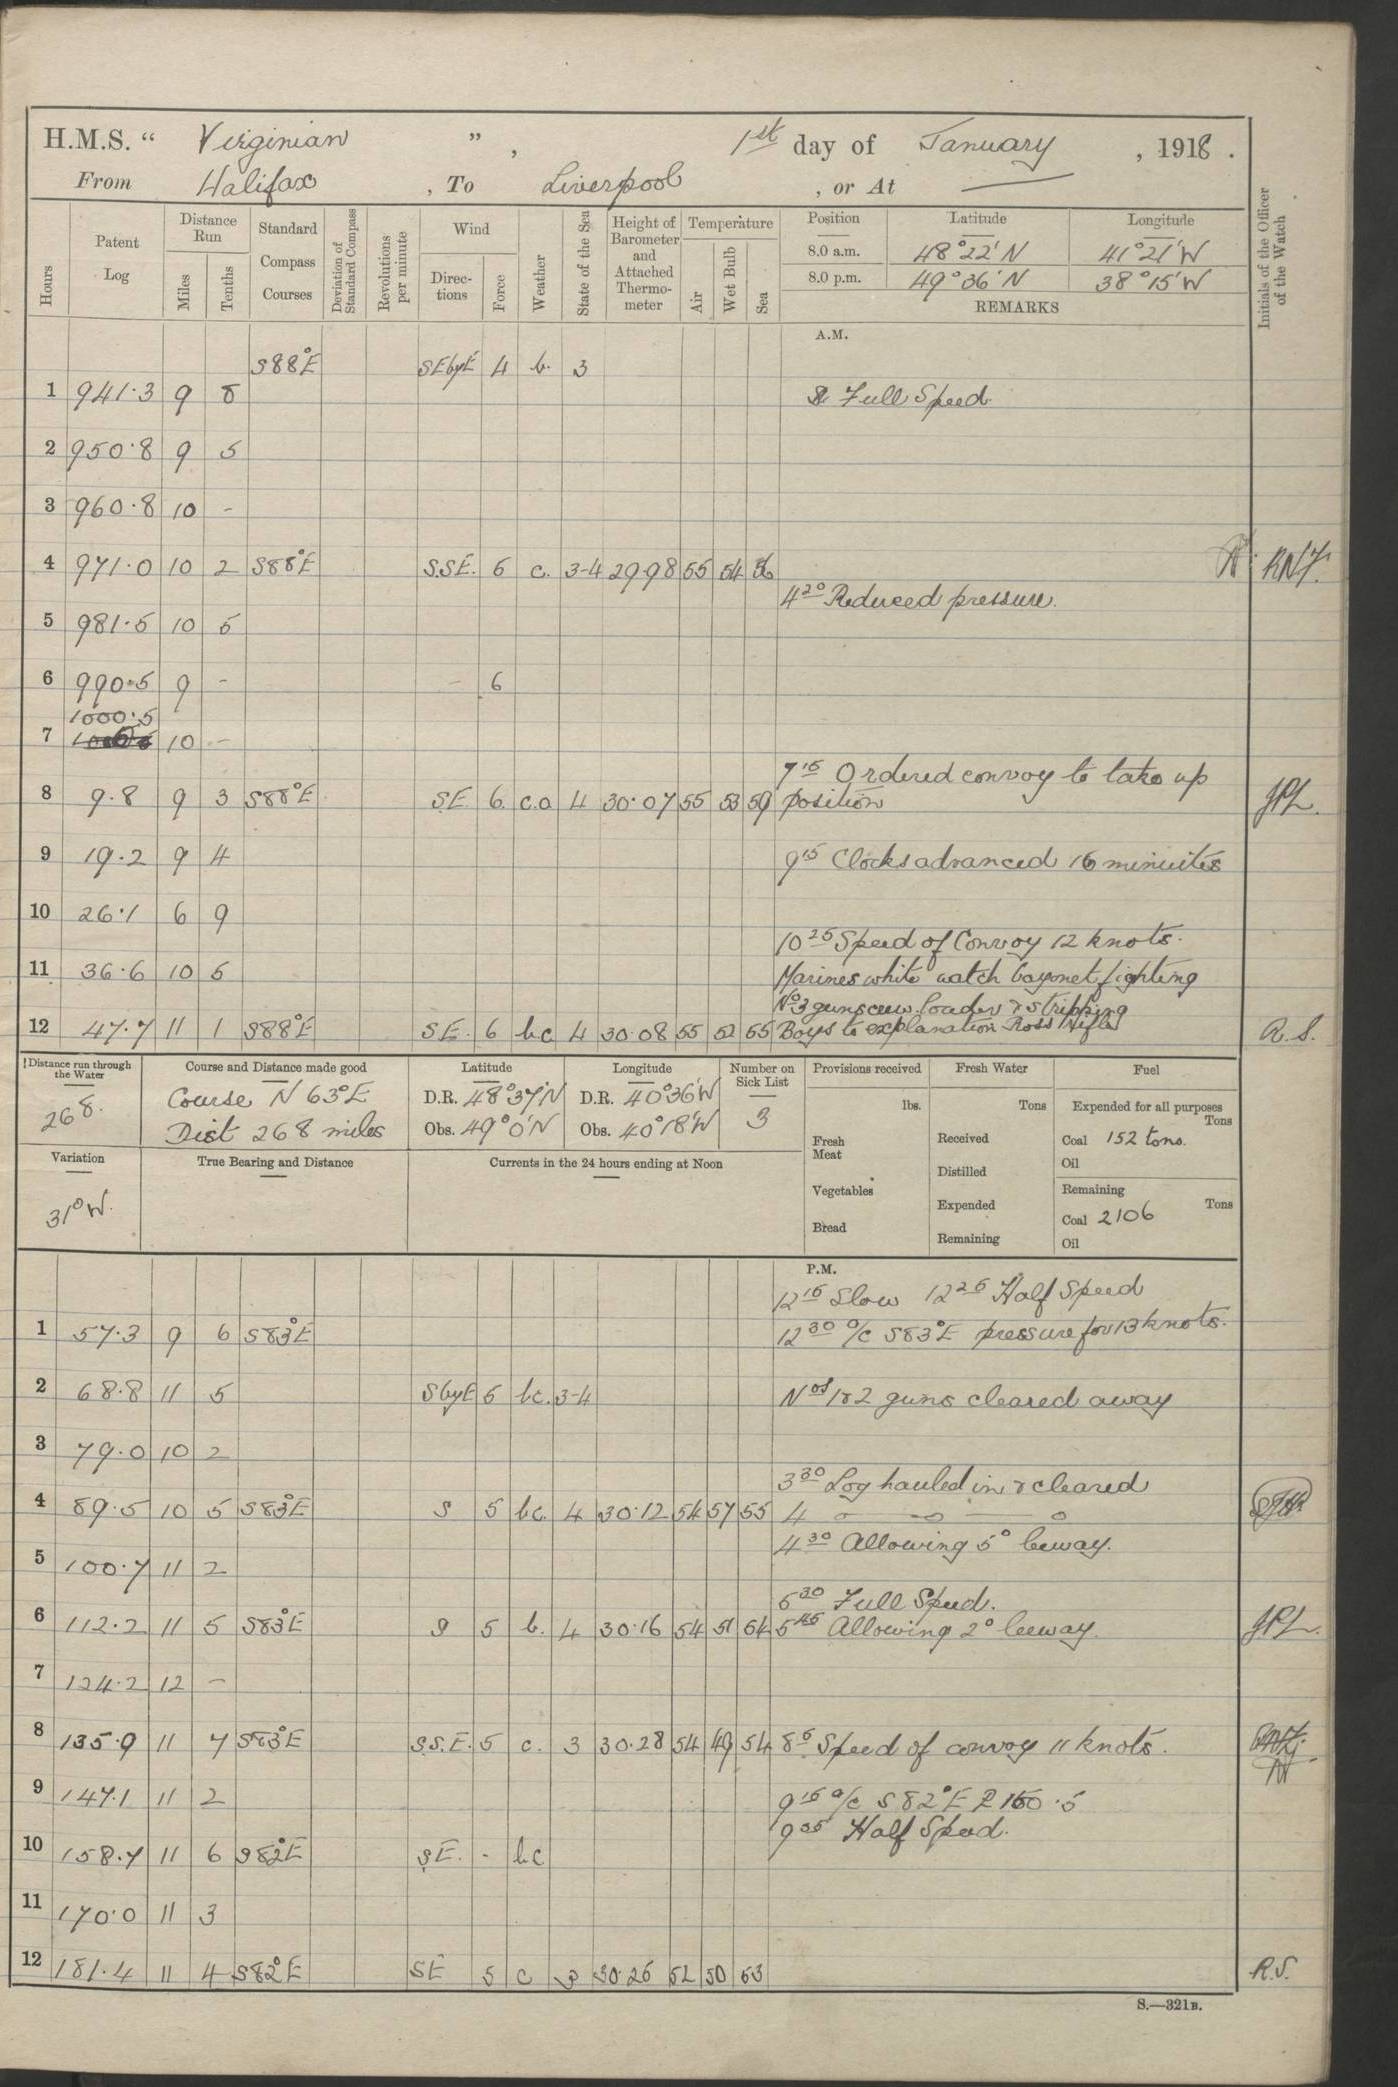 H.M.S. “ Virginian ” , 1st day of January , 1918 .
From Halifax , To Liverpool , or At —
Hours Patent Log Distance Run Miles Tenths Standard Compass Courses Deviation of Standard Compass Revolutions per minute Wind Direc- tions Force Weather State of the Sea Height of Barometer and Attached Thermo- meter Temperature Air Wet Bulb Sea Position Latitude Longitude Initials of the Officer of the Watch
8.0 a.m. 48°22′N 41°21′W
8.0 p.m. 49°36′N 38°15′W
REMARKS
A.M.
S88°E SEbyE 4 b. 3
1 941.3 9 8 Full Speed.
2 950.8 9 5
3 960.8 10 -
4 971.0 10 2 S88°E S.S.E. 6 c. 3-4 29.98 55 54 56 RNJ.
4 20 Reduced pressure.
5 981.5 10 5
6 990.5 9 - - 6
1000.5
7 10 -
7 15 Ordered convoy to take up
8 9.8 9 3 S88°E S.E. 6 c.o 4 30.07 55 53 59 position JPL.
9 19.2 9 4 9 15 Clocks advanced 16 minuites
10 26.1 6 9
10 25 Speed of Convoy 12 knots.
11 36.6 10 5 Marines white watch bayonet fighting
No3 guns crew loader & stripping
12 47.7 11 1 S88°E S.E. 6 bc 4 30.08 55 52 55 Boys to explanation Ross Rifle R.S.
Distance run through the Water Course and Distance made good Latitude Longitude Number on Sick List Provisions received Fresh Water Fuel
268. Course N 63°E D.R. 48°37′N D.R. 40°36′W 3 lbs. Tons Expended for all purposes Tons
Dist 268 miles Obs. 49°0′N Obs. 40°18′W Fresh Meat Received Coal 152 tons.
Variation True Bearing and Distance Currents in the 24 hours ending at Noon Distilled Oil
31°W. Vegetables Expended Remaining Tons
Coal 2106
Bread Remaining Oil
P.M.
12 15 Slow 12 25 Half Speed
1 57.3 9 6 S83°E 12 30 a/c S83°E pressure for 13 knots.
2 68.8 11 5 SbyE 5 bc. 3-4 Nos 1&2 guns cleared away
3 79.0 10 2
3 30 Log hauled in & cleared
4 89.5 10 5 S83°E S 5 bc. 4 30.12 54 57 55 4 —o —o— —o
4 30 Allowing 5° leeway.
5 100.7 11 2
5 30 Full Speed.
6 112.2 11 5 S83°E S 5 b. 4 30.16 54 51 54 5 45 Allowing 2° leeway. JPL.
7 124.2 12 -
8 135.9 11 7 S83°E S.S.E. 5 c. 3 30.28 54 49 54 8 5 Speed of convoy 11 knots.
9 147.1 11 2 9 15 a/c S82°E P 150.5
9 35 Half Speed.
10 158.7 11 6 S82°E S.E. - bc
11 170.0 11 3
12 181.4 11 4 S82°E SE 5 c 3 30.26 52 50 53 R.S.
S.—321B.